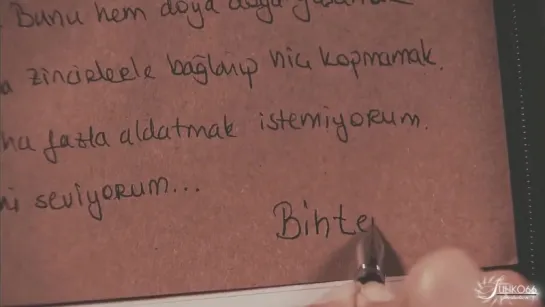 Bunu hem doya doya yaşamak
a zincirlerle bağlanıp hiç kopmamak.
ha fazla aldatmak istemiyorum.
ni seviyorum...
Bihte
JUNKO66